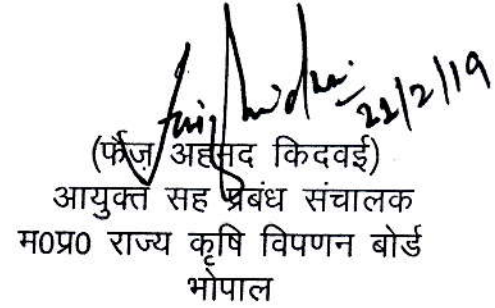 22/2/19
(फैज़ अहमद किदवई)
आयुक्त सह प्रबंध संचालक
म0प्र0 राज्य कृषि विपणन बोर्ड
भोपाल